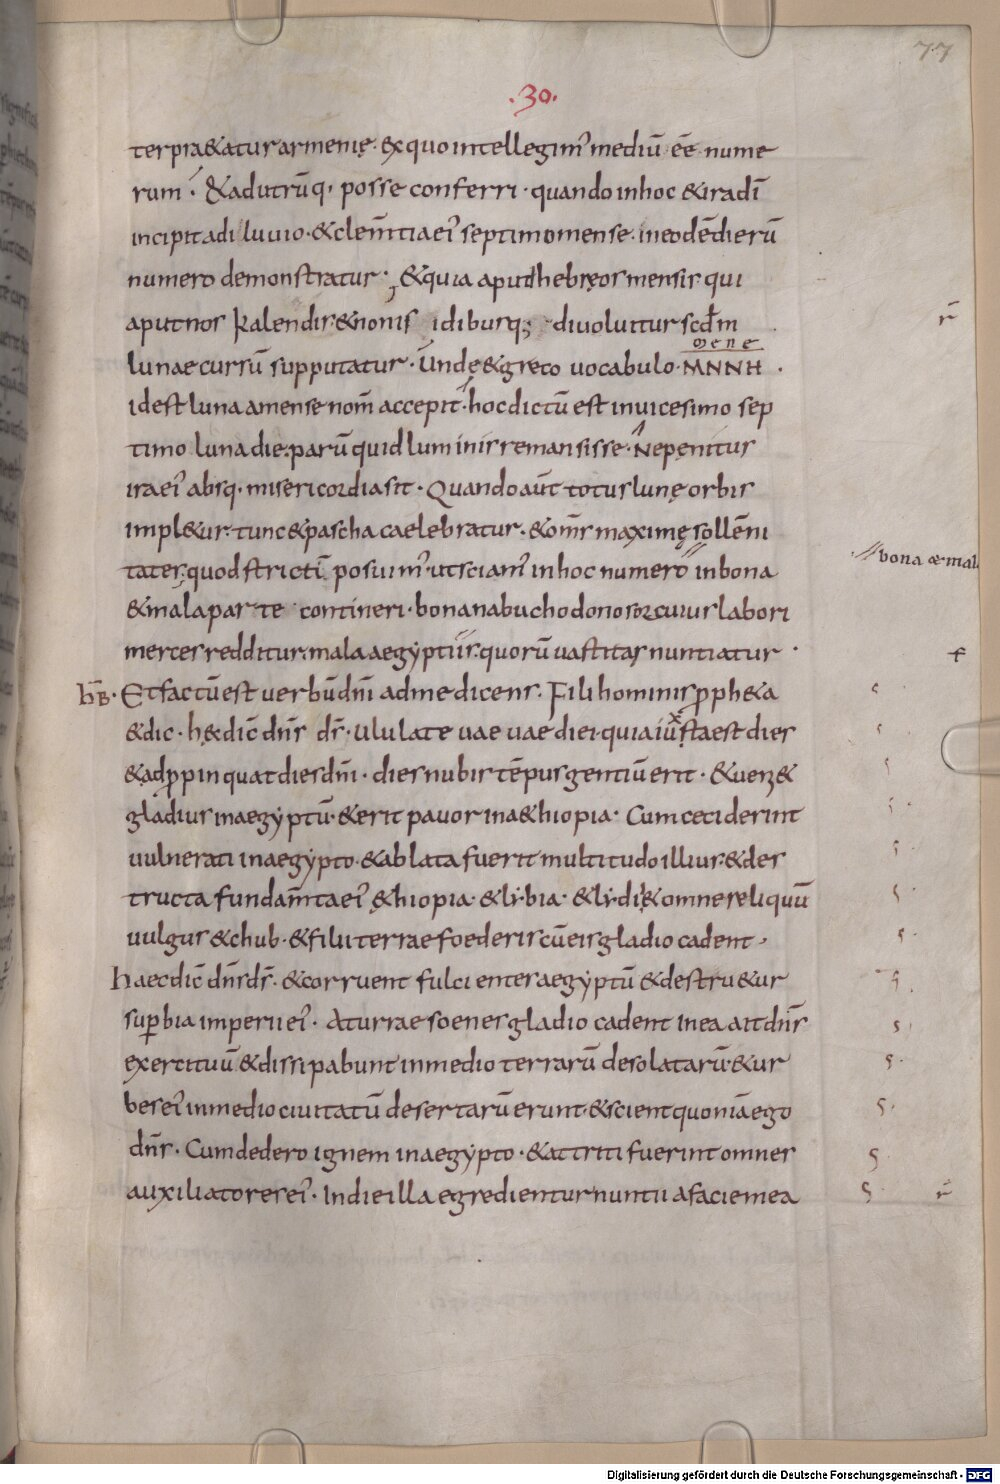 77
.30.
terpretatur armenię. ex quo intellegim' mediū eē nume
rum. & ad utrūq. posse conferri. quando in hoc & ira dī
incipit a diluuio. & clem̄tia ei' septimo mense. in eodē dierū
numero demonstratur. & quia aput hebręos mensis qui
aput nos kalendis & nonis idibusq; diuoluitur scdm
mene
lunae cursū supputatur. Unde & gręco uocabulo. MNNH.
id est luna a mense nom̄ accepit. hoc dictū est in uicesimo sep
timo luna die. parū quid luminis remansisse. Ne penitus
ira ei' absq. misericordia sit. Quando aūt totus lunę orbis
impletur. tunc & pascha caelebratur. & om̄s maximę sollēni
tates. quod strictī posuim' ut sciam' in hoc numero in bona
bona & mala
& mala parte contineri. bona nabuchodonosor cuius labori
merces redditur. mala aegyptiis. quorū uastitas nuntiatur
hB. Et factū est uerbū dn̄i ad me dicens. Fili hominis proph&a
& dic. hęc dic̄ dn̄s ds̄. Ululate uae uae diei. quia iuxta est dies
& adpropinquat dies dn̄i. dies nubis tēpus gentiū erit. & ueni&
gladius in aegyptū. & erit pauor in a&hiopia. Cum ceciderint
uulnerati in aegypto. & ablata fuerit multitudo illius. & des
tructa fundam̄ta ei' ę&hiopia. & lybia. & lydi & omne reliquū
uulgus & chub. & filii terrae foederis cū eis gladio cadent.
haec dic̄ dn̄s ds̄. & corruent fulcientes aegyptū & destru&ur
supbia imperii ei'. A turre soenes gladio cadent in ea ait dn̄s
exercituū & dissipabunt in medio terrarū desolatarū. & ur
bes ei' in medio ciuitatū desertarū erunt. & scient quoniā ego
dn̄s. Cum dedero ignem in aegypto. & attriti fuerint omnes
auxiliatores ei'. In die illa egredientur nuntii a facie mea
Digitalisierung gefördert durch die Deutsche Forschungsgemeinschaft - DFG